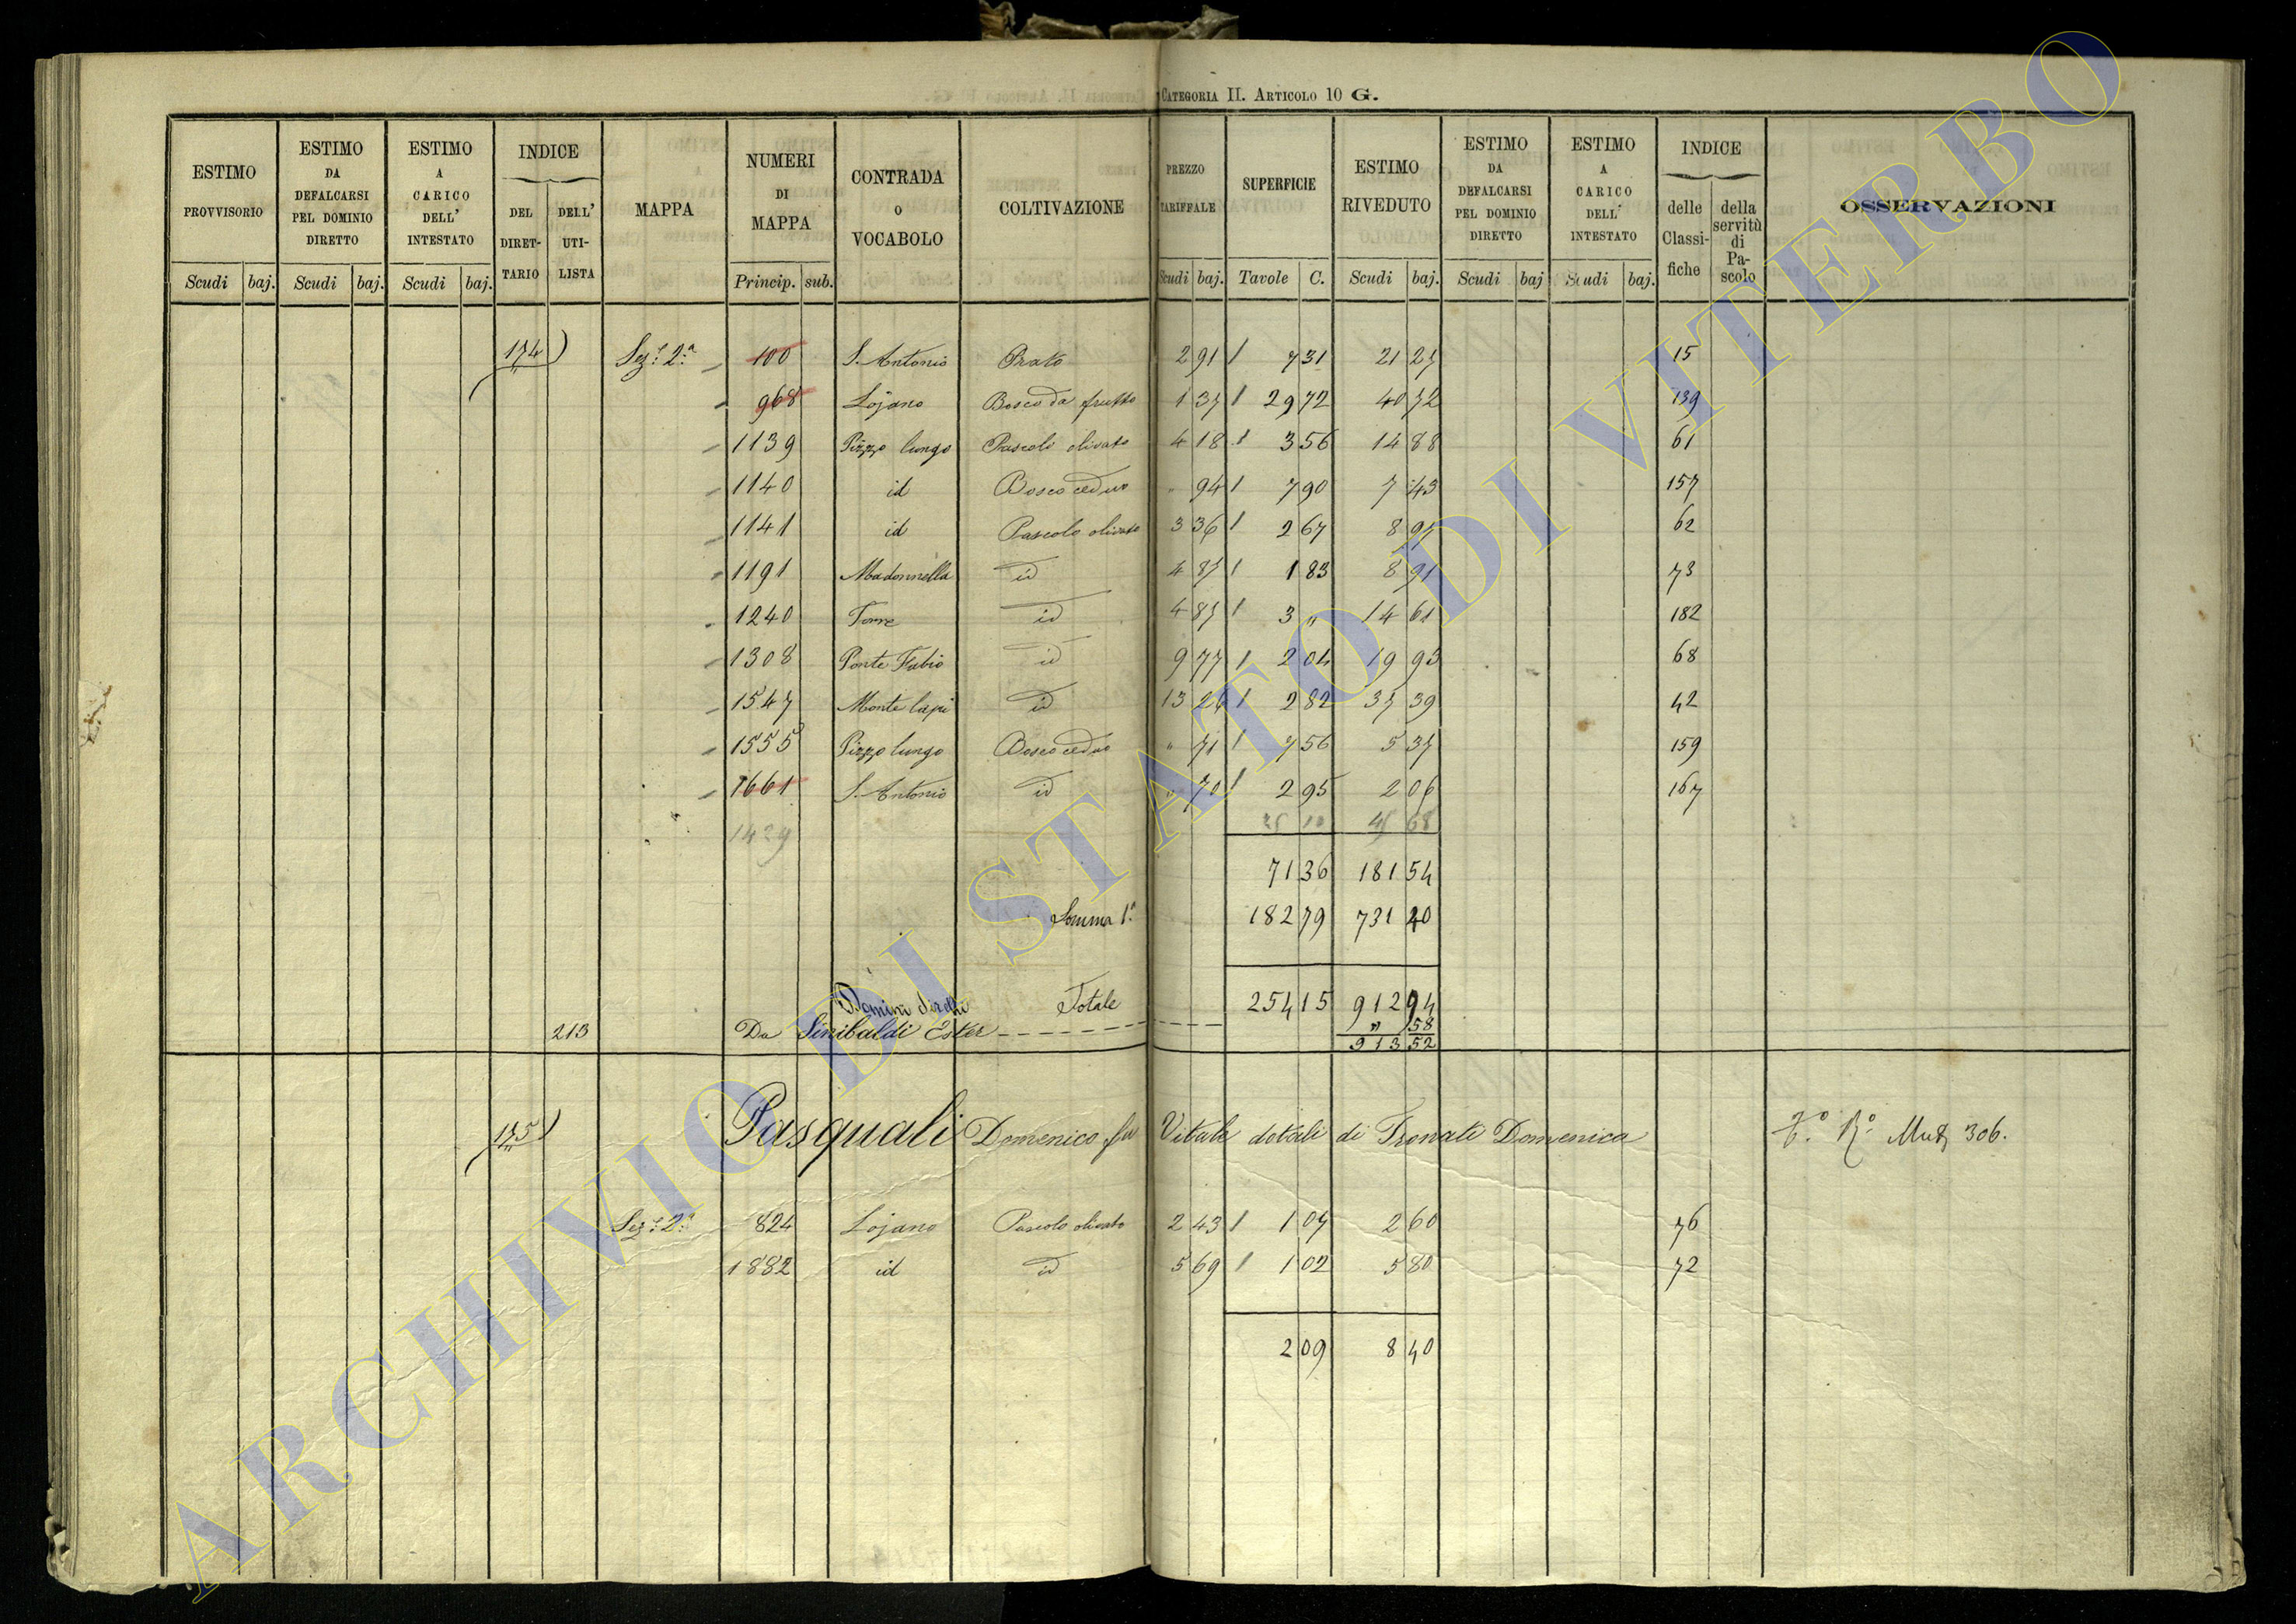 CATEGORIA II. ARTICOLO 10 G.
ESTIMO PROVVISORIO Scudi baj.
ESTIMO DA DEFALCARSI PEL DOMINIO DIRETTO Scudi baj.
ESTIMO A CARICO DELL' INTESTATO Scudi baj.
INDICE DEL DIRETTARIO DELL' UTILISTA
MAPPA
NUMERI DI MAPPA Princip. sub.
CONTRADA O VOCABOLO
COLTIVAZIONE
PREZZO TARIFFALE Scudi baj.
SUPERFICIE Tavole C.
ESTIMO RIVEDUTO Scudi baj.
ESTIMO DA DEFALCARSI PEL DOMINIO DIRETTO Scudi baj
ESTIMO A CARICO DELL' INTESTATO Scudi baj.
INDICE delle Classifiche della servitù di Pascolo
OSSERVAZIONI
174) Sez: 2.ª 100 S. Antonio Prato 2 91 7 31 21 27 15
968 Lojano Bosco da frutto 1 37 29 72 40 72 139
1139 Pizzo lungo Pascolo olivato 4 18 3 56 14 88 61
1140 id Bosco ceduo " 94 7 90 7 43 157
1141 id Pascolo olivato 3 36 2 67 8 97 62
1191 Madonnella id 4 87 1 83 8 91 73
1240 Torre id 4 87 3 " 14 61 182
1308 Ponte Fabio id 9 77 2 04 19 93 68
1547 Monte lapi id 13 26 2 82 37 39 42
1555 Pizzo lungo Bosco ceduo " 71 7 56 5 37 159
1661 S. Antonio id " 70 2 95 2 06 167
1429
71 36 181 54
Somma 1.ª 182 79 731 40
Totale 254 15 912 94
Domini diretti
213 Da Sinibaldi Ester " 58
913 52
175) Pasquali Domenico fu Vitale dotali di Tronati Domenica Mut 306.
Sez: 2.ª 824 Lojano Pascolo olivato 2 43 1 07 2 60 76
1882 id id 5 69 1 02 5 80 72
2 09 8 40
ARCHIVIO DI STATO DI VITERBO